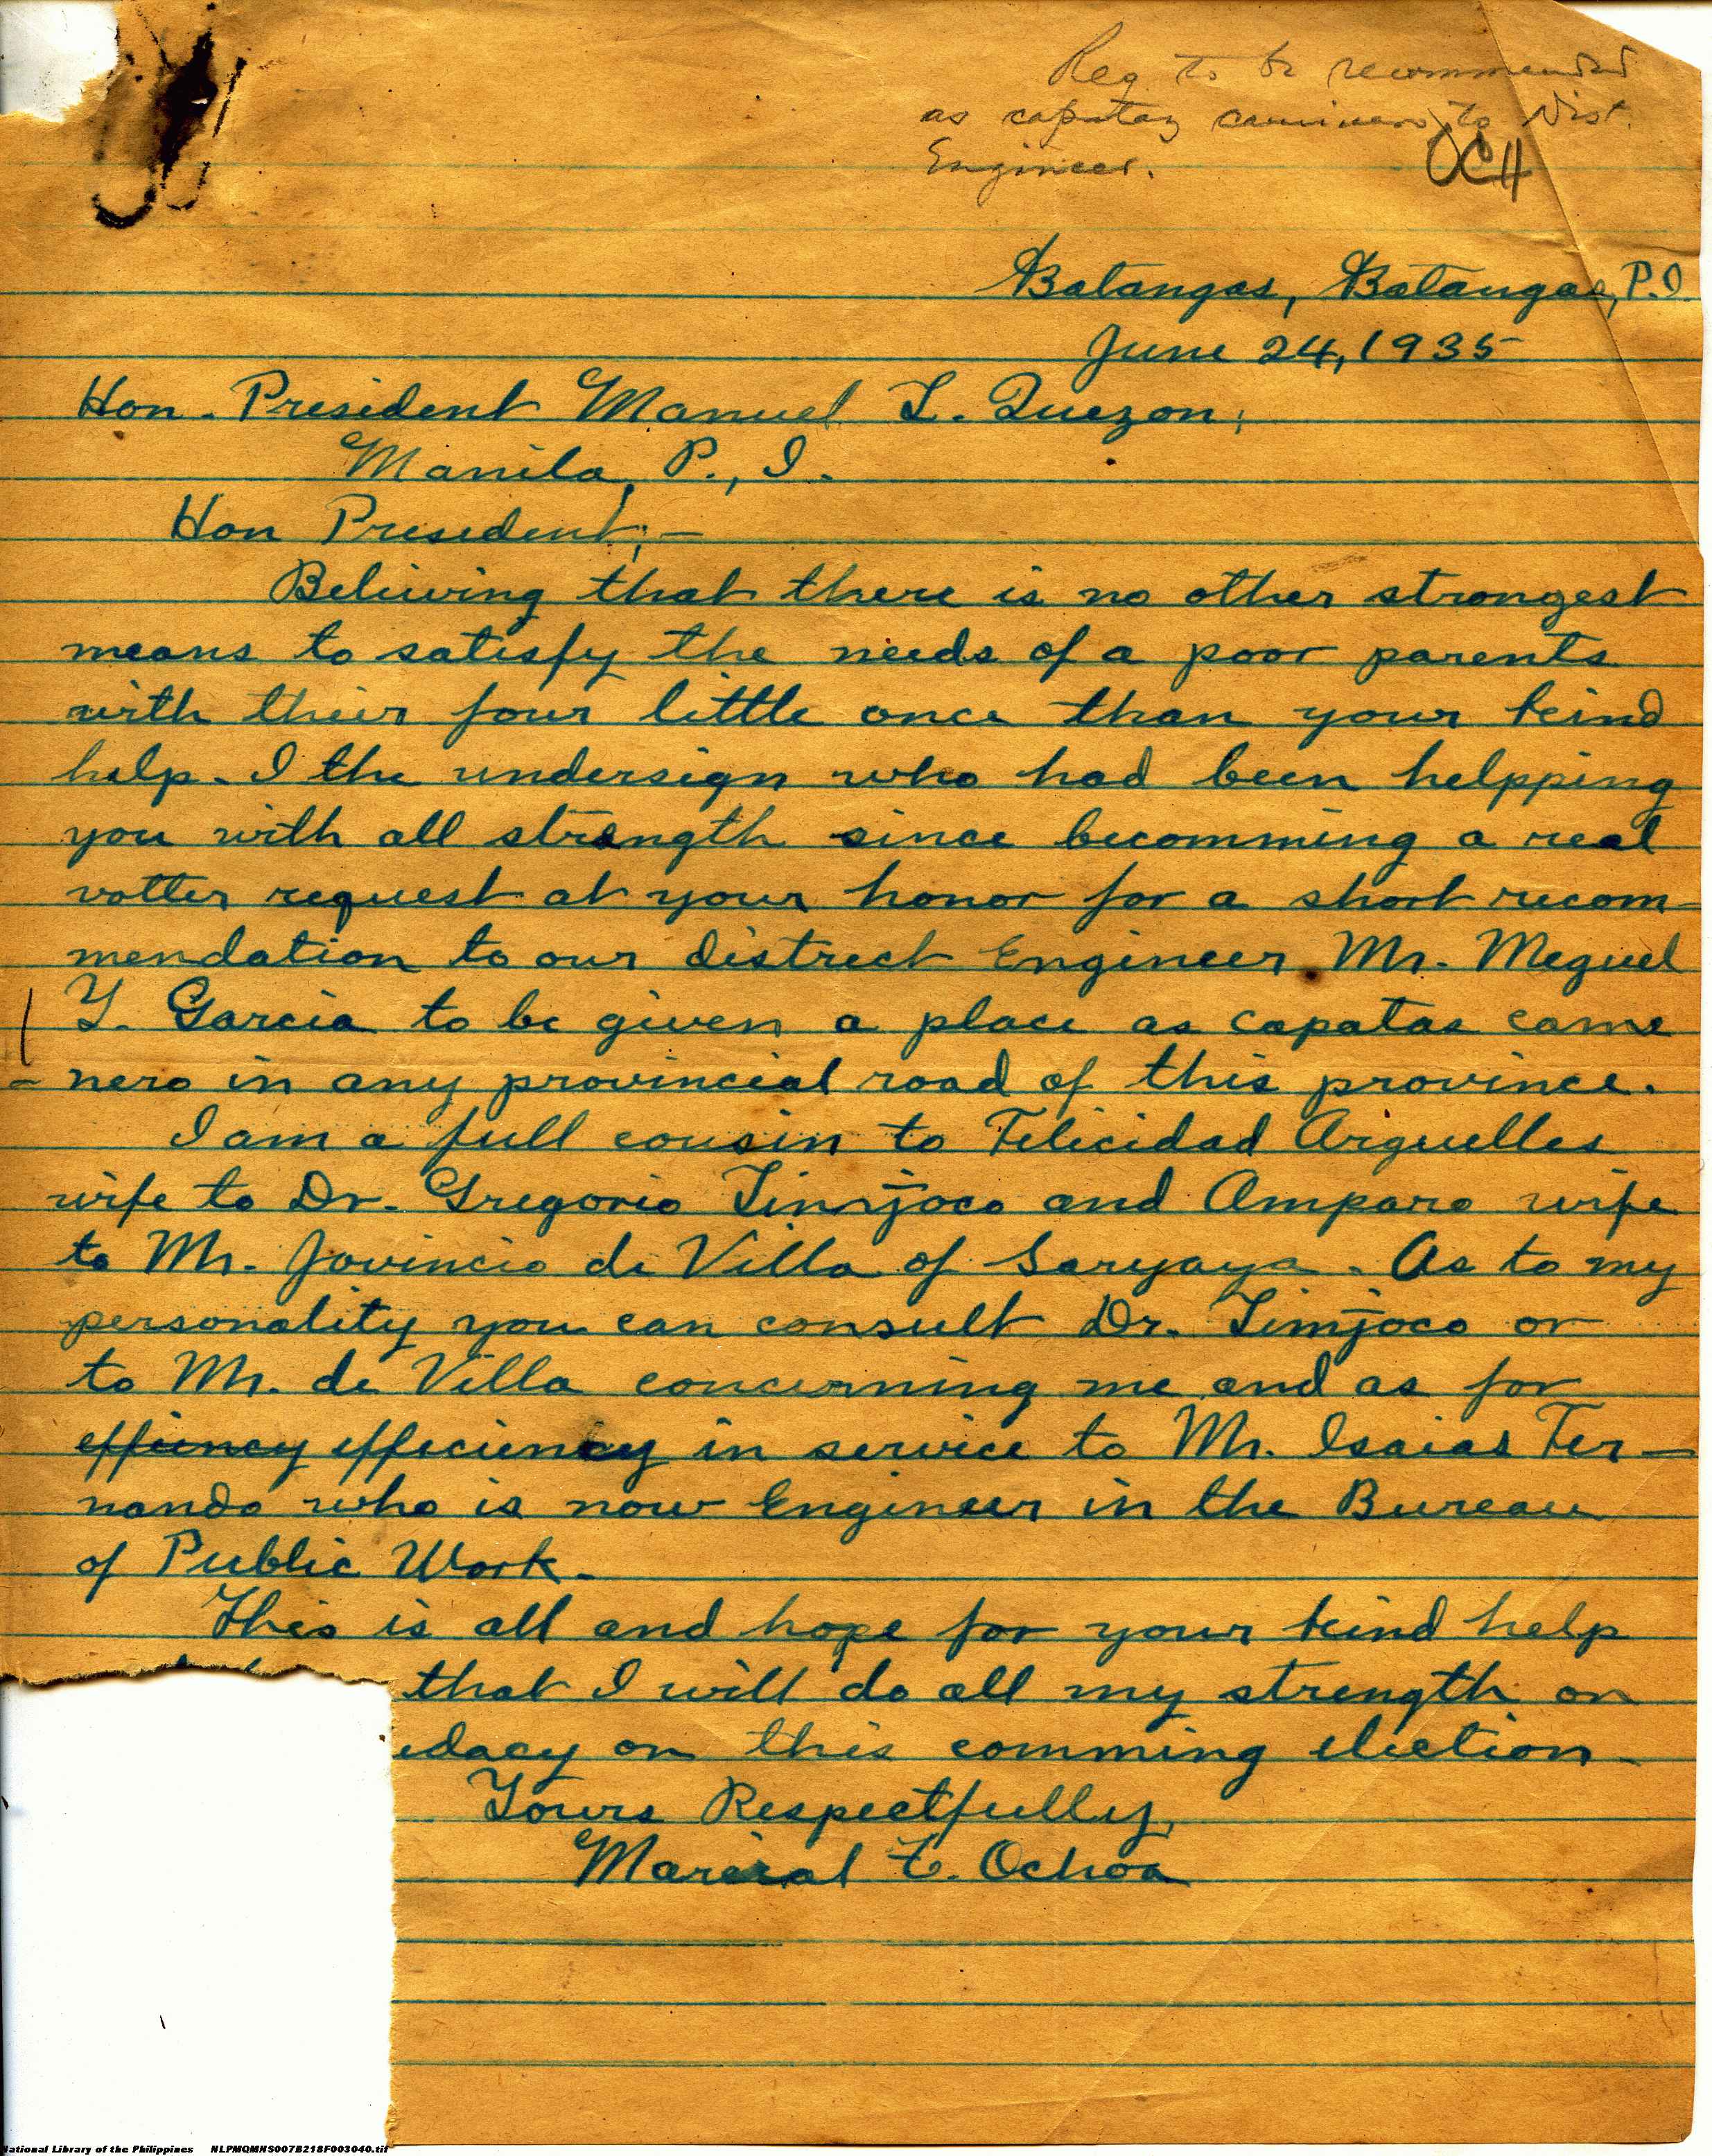 Req to be recommended
as capataz caminero to Dist.
Engineer.
OCH
Batangas, Batangas, P.I.
June 24, 1935
Hon. President Manuel L. Quezon;
Manila, P., I.
Hon President;-
Beliving that there is no other strongest
means to satisfy the needs of a poor parents
with their four little once than your kind
help. I the undersign who had been helpping
you with all strength since becomming a real
votter request at your honor for a short recom-
mendation to our distrect Engineer Mr. Meguel
Y. Garcia to be given a place as capatas came
-nero in any provincial road of this province.
I am a full cousin to Felicidad Arguelles
wife to Dr. Gregorio Limjoco and Amparo wife
to Mr. Jovincio de Villa of Saryaya. As to my
personality you can consult Dr. Limjoco or
to Mr. de Villa concerning me and as for
effiency efficiency in service to Mr. Isaias Fer-
nando who is now Engineer in the Bureau
of Public Work.
This is all and hope for your kind help
that I will do all my strength on
idacy on this comming election.
Yours Respectfully,
Marcial E. Ochoa
National Library of the Philippines NLPMQMNS007B218F003040.tif